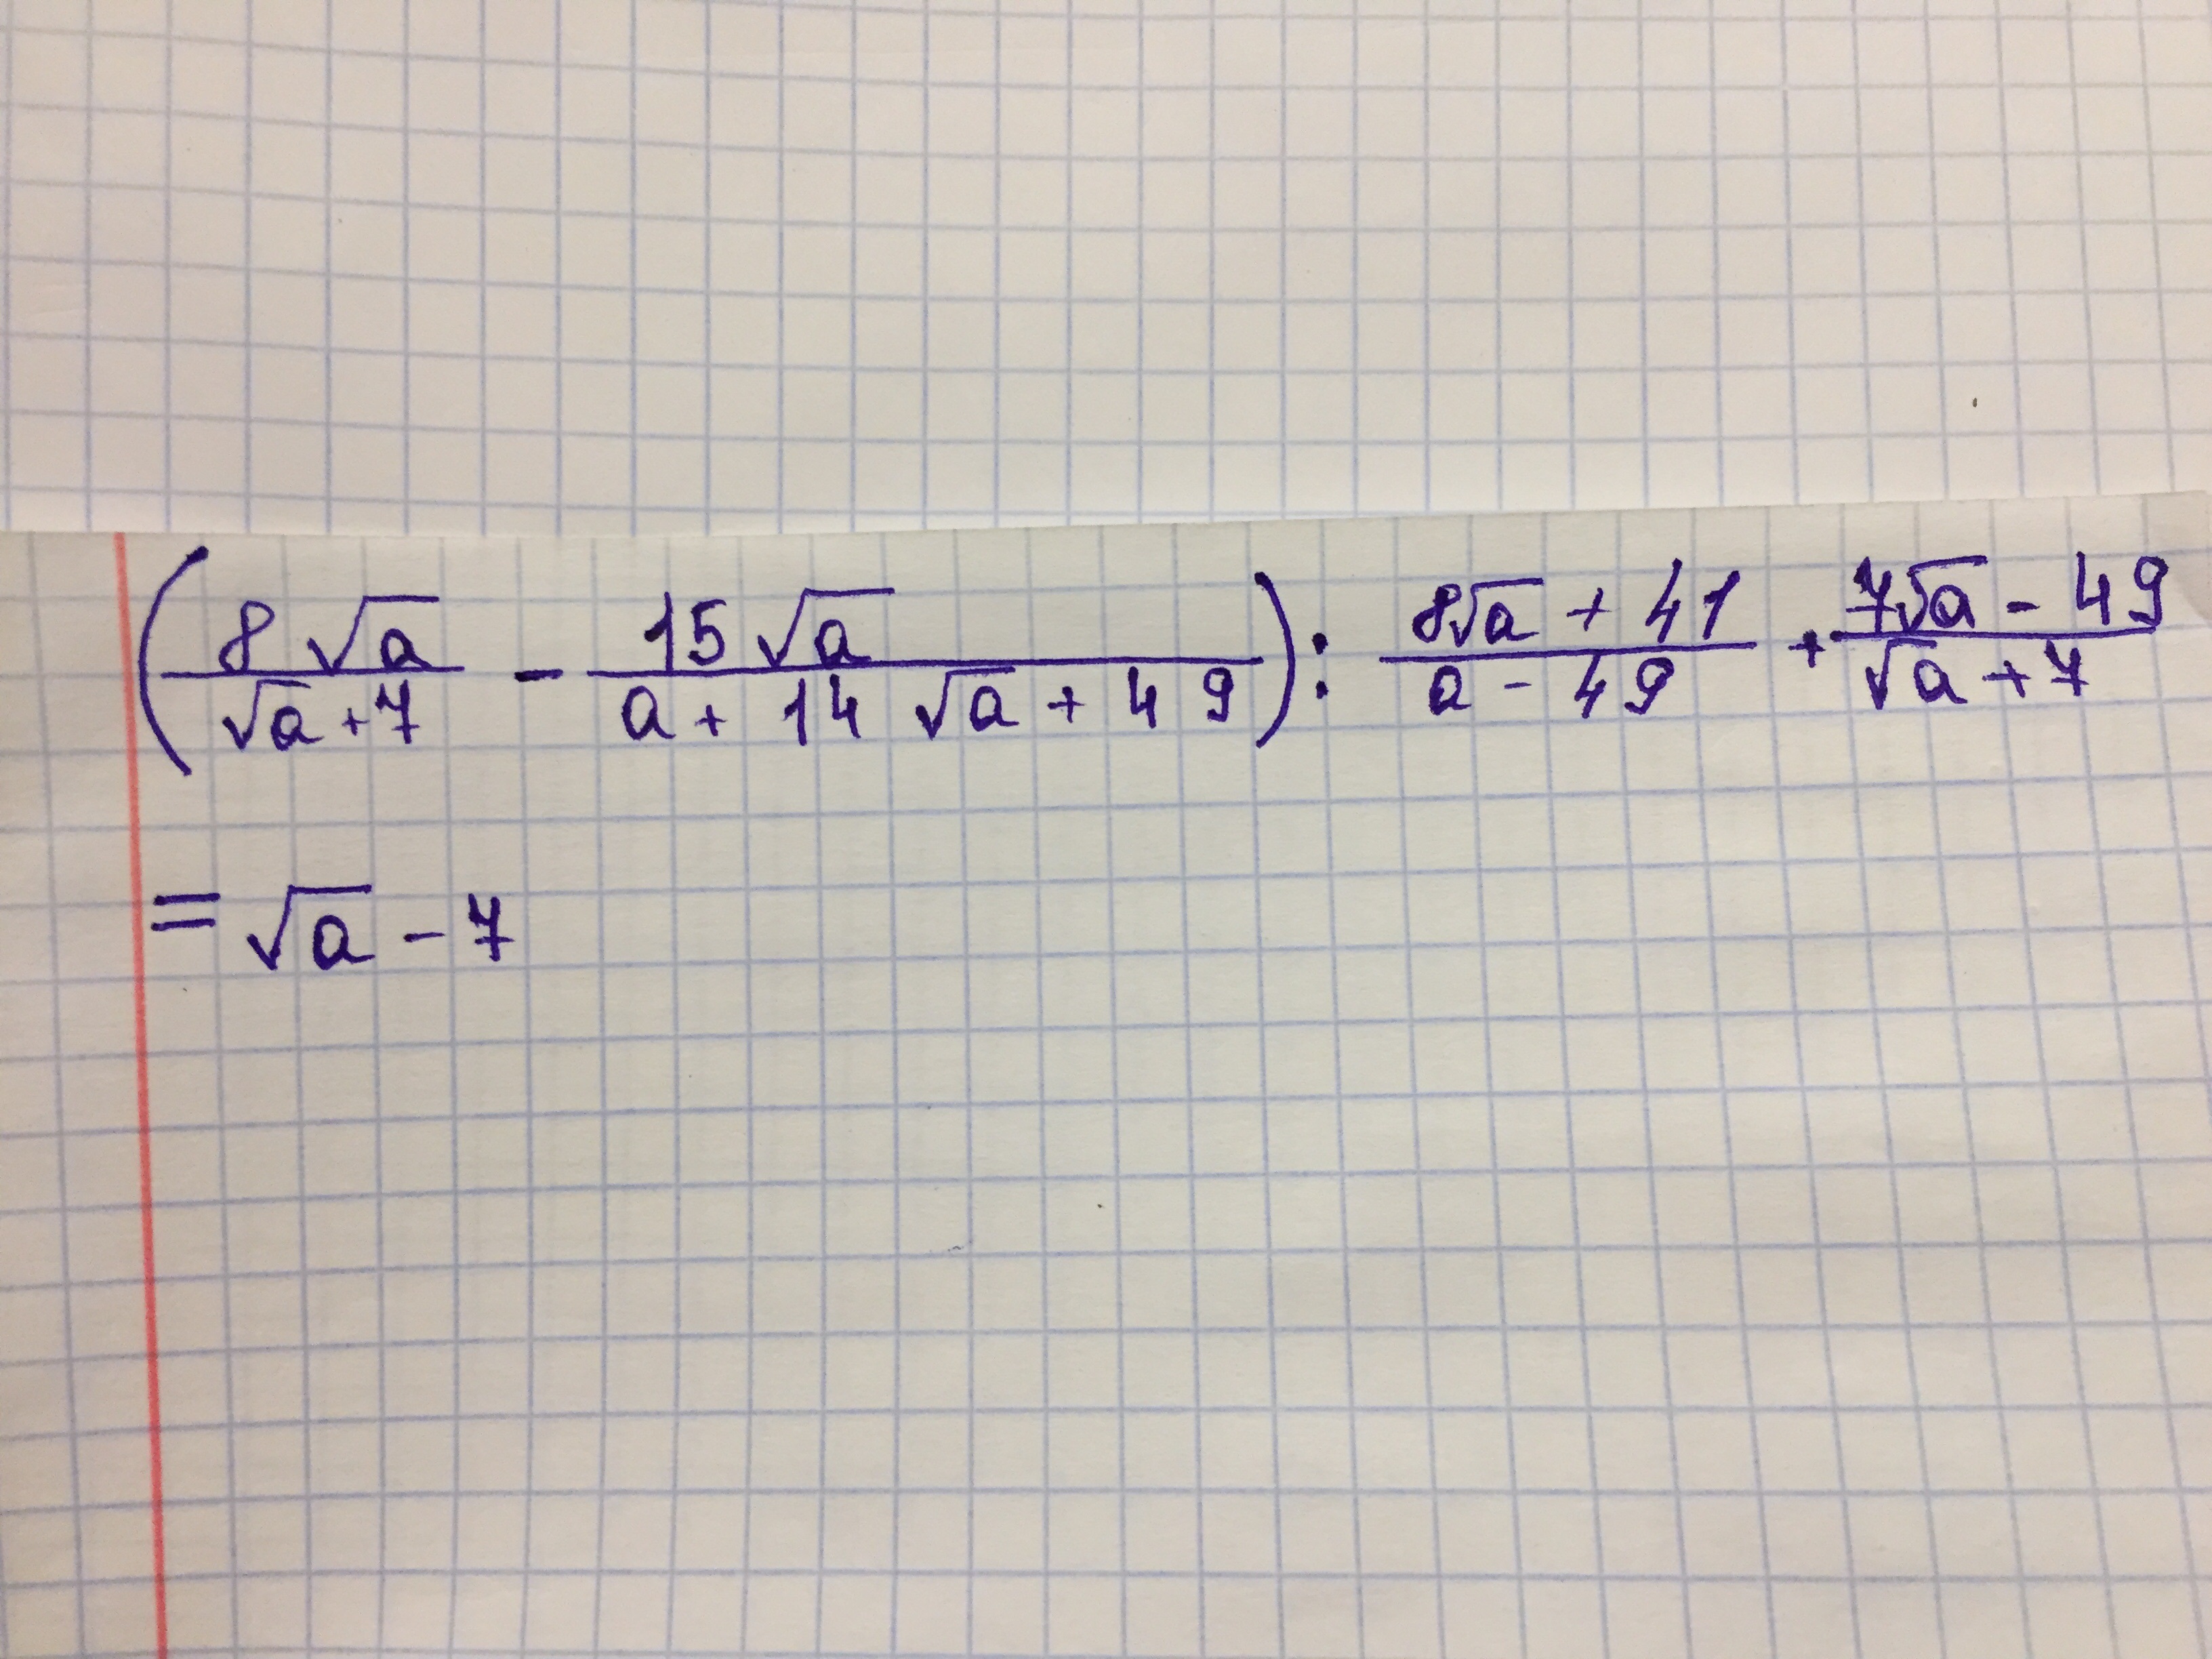 (8√a/(√a+7) - 15√a/(a+14√a+49)) : (8√a+41)/(a-49) + (7√a-49)/(√a+7)
= √a - 7